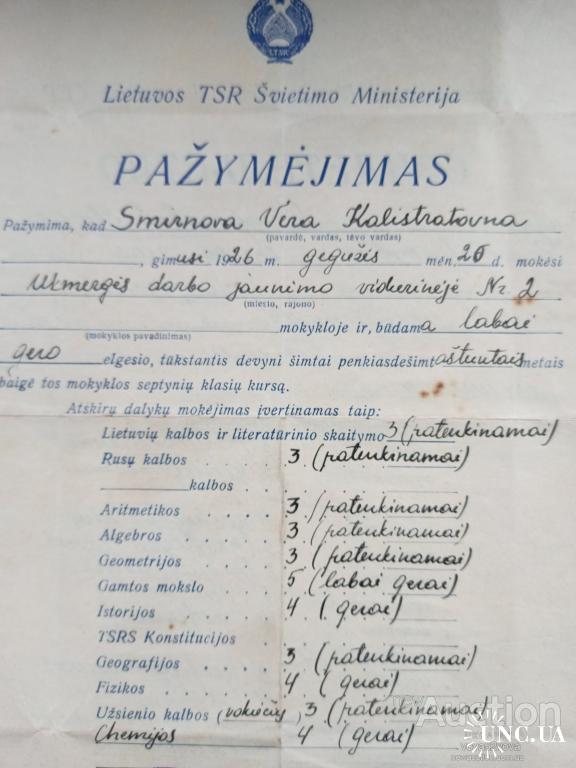 LTSR
Lietuvos TSR Švietimo Ministerija
PAŽYMĖJIMAS
Pažymima, kad Smirnova Vera Kalistratovna
(pavardė, vardas, tėvo vardas)
, gimusi 1926 m. gegužės mėn. 20 d. mokėsi
Ukmergės darbo jaunimo vidurinėje Nr. 2
(miesto, rajono)
mokykloje ir, būdama labai
(mokyklos pavadinimas)
gero elgesio, tūkstantis devyni šimtai penkiasdešimt aštuntais metais
baigė tos mokyklos septynių klasių kursą.
Atskirų dalykų mokėjimas įvertinamas taip:
Lietuvių kalbos ir literatūrinio skaitymo 3 (patenkinamai)
Rusų kalbos . . . . 3 (patenkinamai)
kalbos . . .
Aritmetikos . . . . 3 (patenkinamai)
Algebros . . . . 3 (patenkinamai)
Geometrijos . . . . 3 (patenkinamai)
Gamtos mokslo . . . 5 (labai gerai)
Istorijos . . . . 4 (gerai)
TSRS Konstitucijos . . .
Geografijos . . . . 3 (patenkinamai)
Fizikos . . . . 4 (gerai)
Užsienio kalbos (vokiečių) 3 (patenkinamai)
Chemijos 4 (gerai)
Auction
UNC.UA